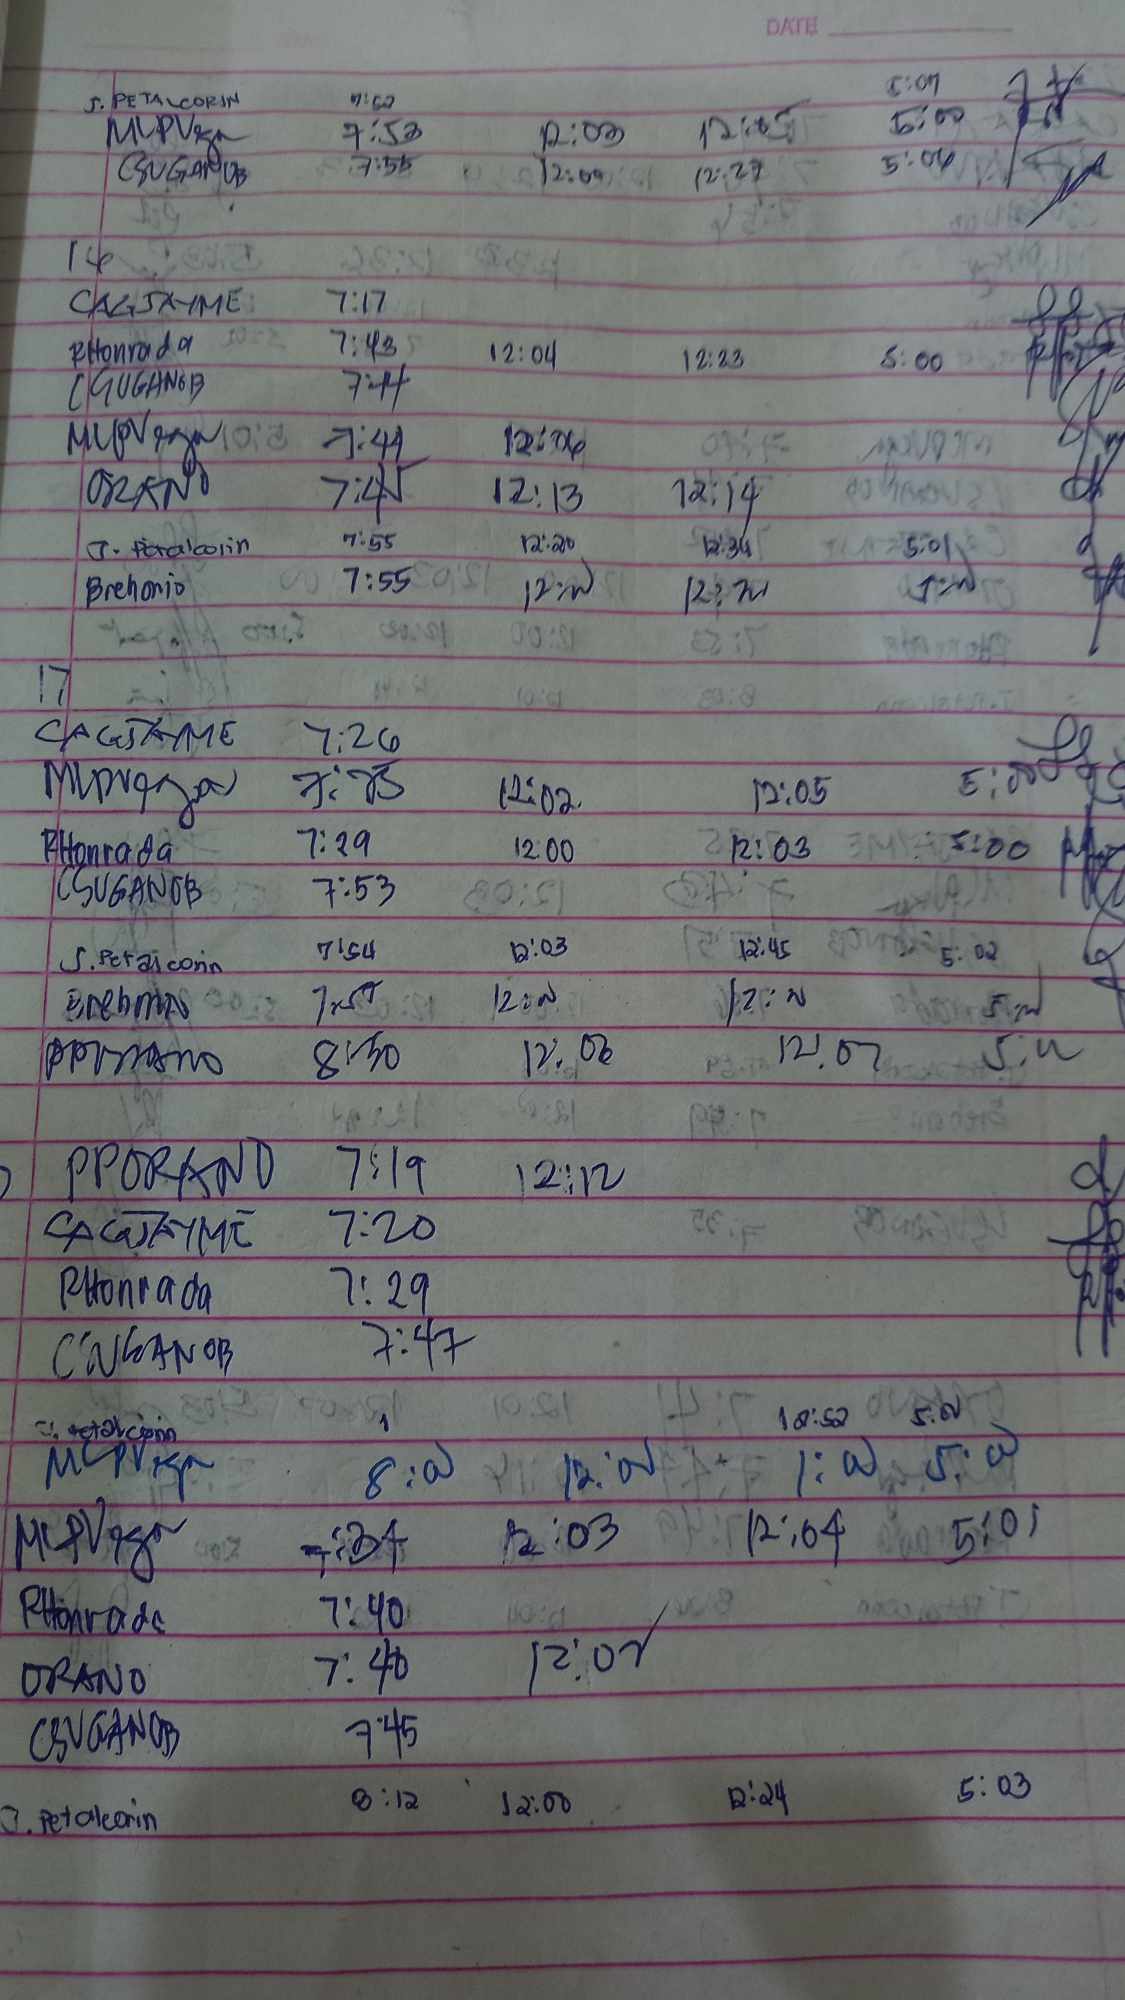 DATE
J. PETALCORIN 7:52 5:07
MLPVega 7:53 12:03 12:05 5:00
CSUGANOB 7:55 12:09 12:27 5:06
16
CAGJAYME 7:17
RHonrada 7:43 12:04 12:23 5:00
CSUGANOB 7:44
MLPVega 7:41 12:06
ORANO 7:45 12:13 12:14
J. Petalcorin 7:55 12:20 12:34 5:01
Brehonio 7:55
17
CAGJAYME 7:26
MLPVega 12:02 12:05 5:00
RHonrada 7:29 12:00 12:03 5:00
CSUGANOB 7:53
J. Petalcorin 7:54 12:03 12:45 5:02
8:30 12:06 12:07
PPORANO 7:19 12:12
CAGJAYME 7:20
RHonrada 7:29
CSUGANOB 7:47
J. Petalcorin
MLPVega 8:00 12:00 1:00 5:00
MLPVega 7:34 12:03 12:04 5:01
RHonrada 7:40
ORANO 7:40
CSUGANOB 7:45
J. Petalcorin 8:12 12:00 12:24 5:03